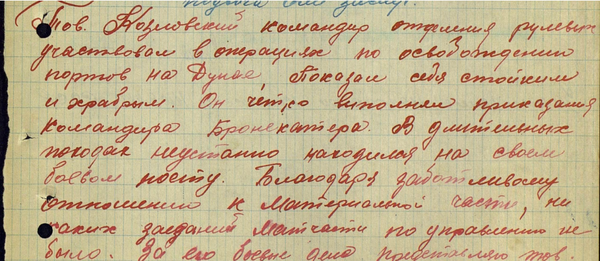 Тов. Козловский командир отделения рулевых
участвовал в операциях по освобождению
портов на Дунае Показал себя стойким
и храбрым. Он чётко выполнял приказания
командира Бронекатера. В длительных
походах неустанно находился на своем
боевом посту. Благодаря заботливому
отношению к материальной части, ни
каких заеданий матчасти по управлению не
было. За его боевые дела представляю тов.